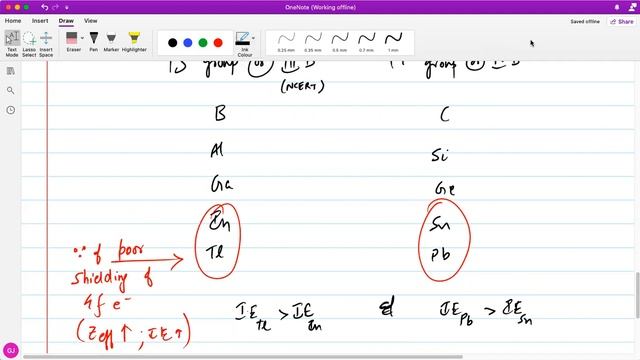 OneNote (Working offline)
Home Insert Draw View Class Notebook
Saved offline Share
Text Mode Lasso Select Insert Space Eraser Pen Marker Highlighter Ink Colour 0.25 mm 0.35 mm 0.5 mm 0.7 mm 1 mm
13 group (or) III B group (or)
(NCERT)
B C
Al Si
Ga Ge
In Sn
Tl Pb
∵ of poor
shielding of
4f e⁻
(Zeff ↑ ; IE ↑)
IE Tl > IE In & IE Pb > IE Sn
GJ